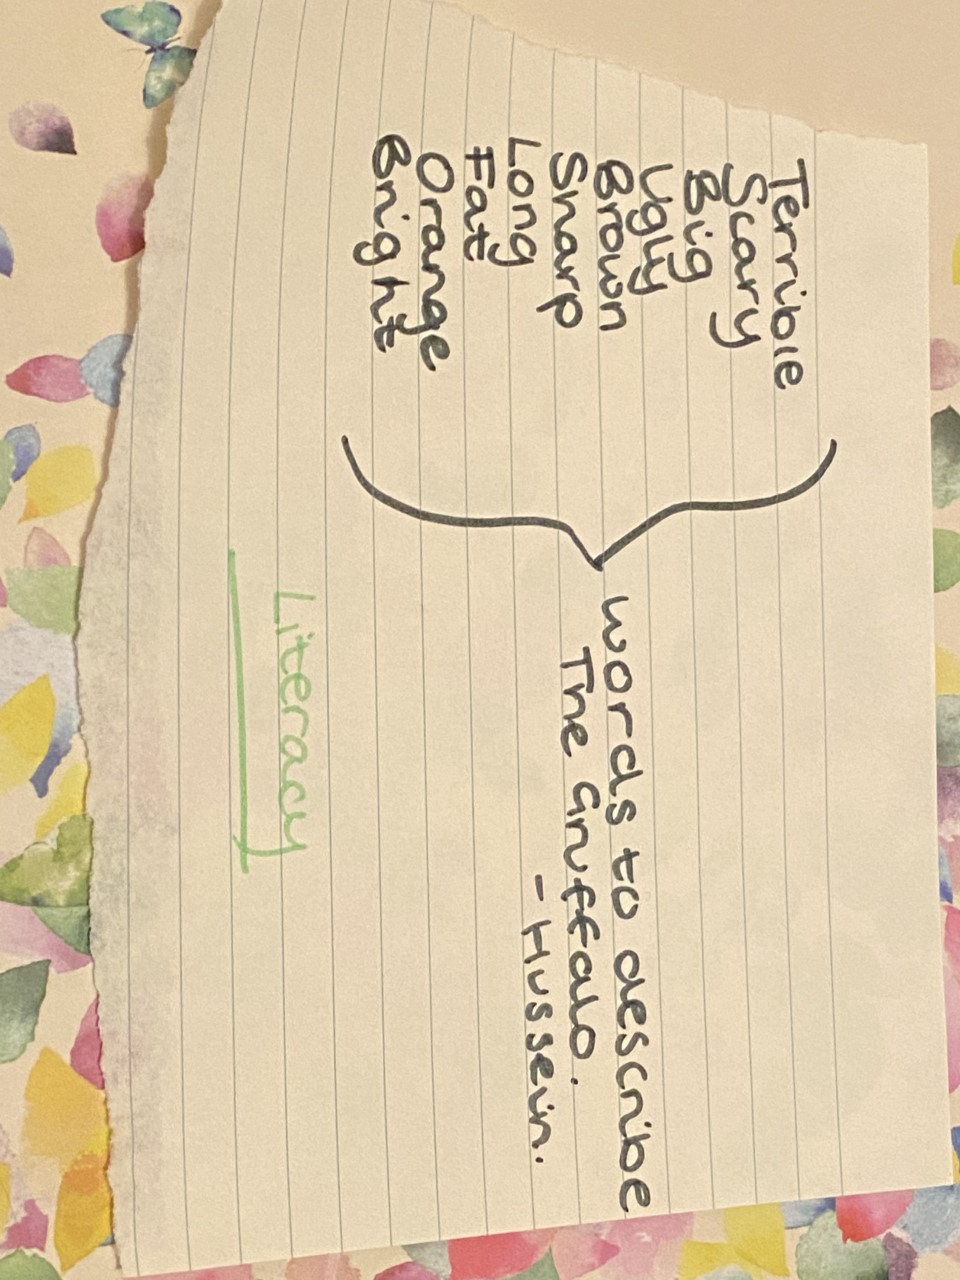 Terrible
Scary
Big
Ugly
Brown
Sharp
Long
Fat
Orange
Bright
words to describe
The Gruffalo.
- Hussein.
Literacy